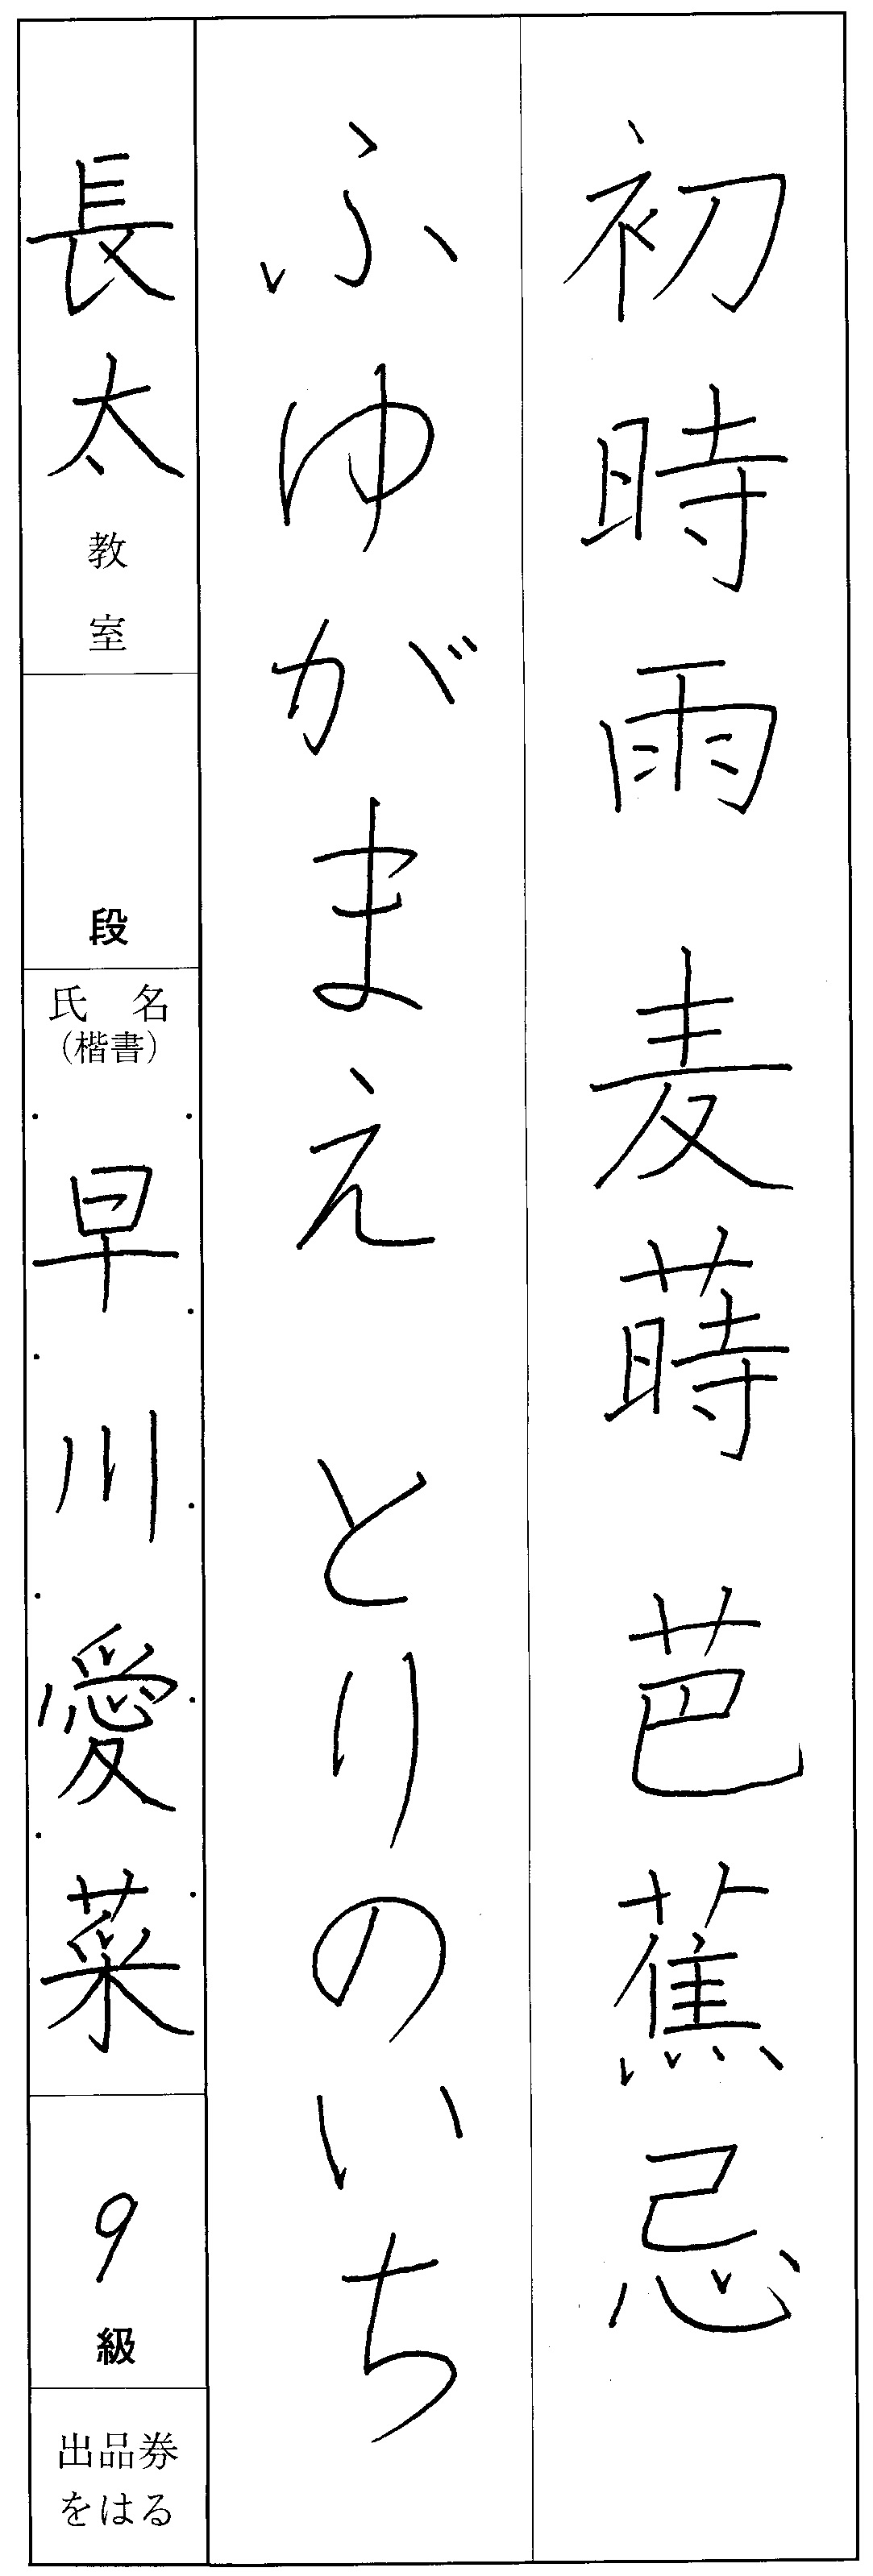 初時雨 麦蒔 芭蕉忌
ふゆがまえ とりのいち
長太教室
段
氏名
（楷書）
早川愛菜
9級
出品券
をはる